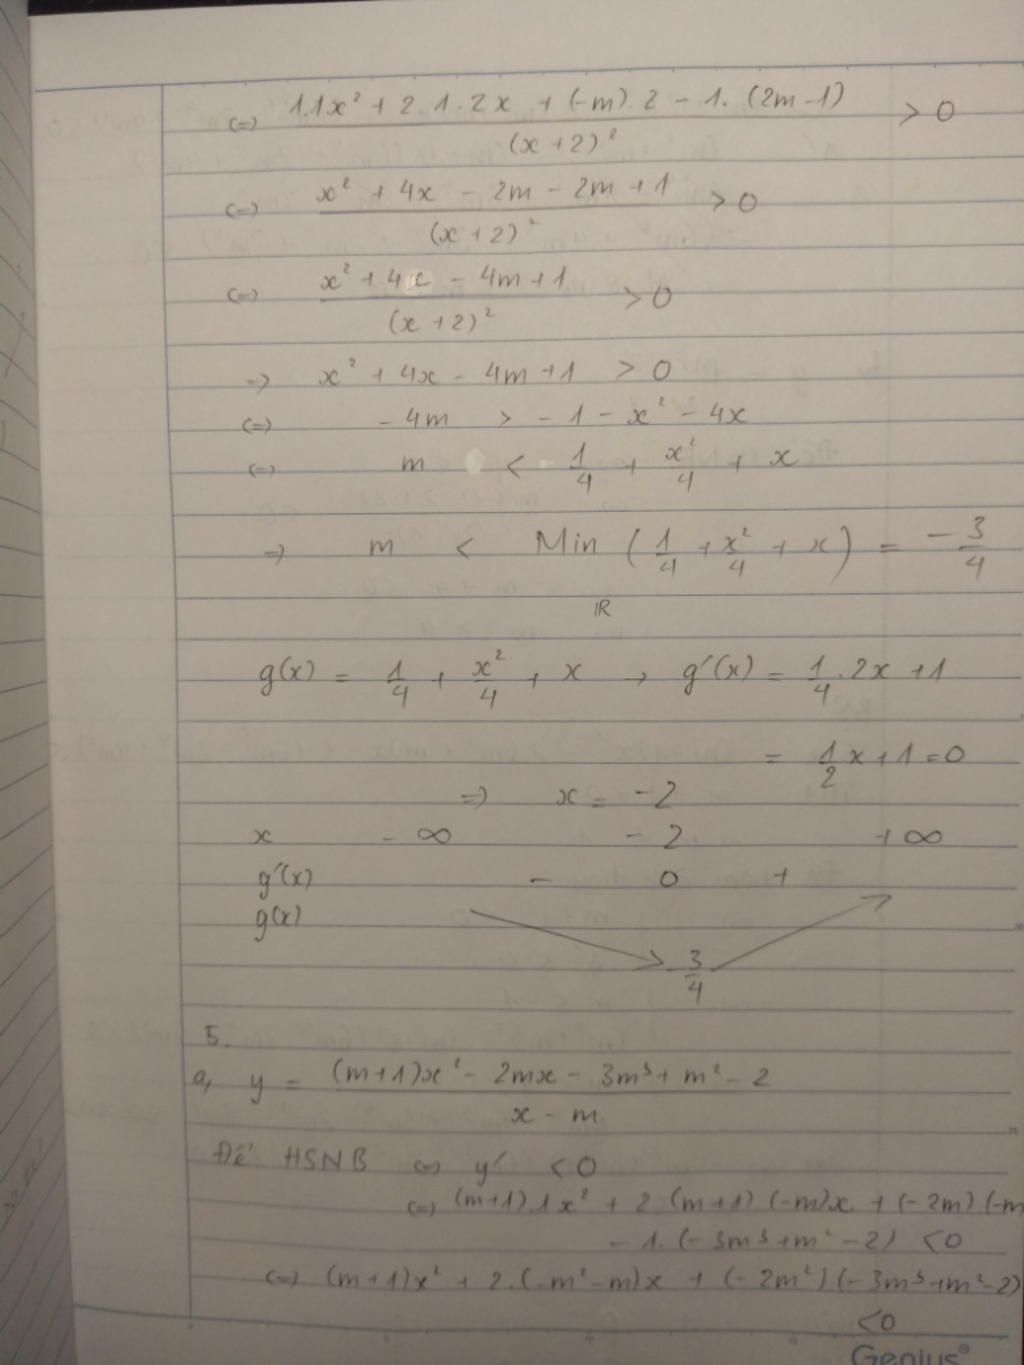 (=) (1.1x² + 2.1.2x + (-m).2 - 1.(2m-1))/(x+2)² > 0
(=) (x² + 4x - 2m - 2m + 1)/(x+2)² > 0
(=) (x² + 4x - 4m + 1)/(x+2)² > 0
=> x² + 4x - 4m + 1 > 0
(=) - 4m > - 1 - x² - 4x
(=) m < 1/4 + x²/4 + x
=> m < Min (1/4 + x²/4 + x) = -3/4
IR
g(x) = 1/4 + x²/4 + x → g'(x) = 1/4 . 2x + 1
= 1/2 x + 1 = 0
=> x = -2
x - ∞ - 2 + ∞
g'(x) - 0 +
g(x)
-3/4
5.
a, y = ((m+1)x² - 2mx - 3m³ + m² - 2)/(x - m)
Để HSNB (=) y' < 0
(=) (m+1).1x² + 2.(m+1)(-m)x + (-2m)(-m
- 1.(-3m³+m²-2) < 0
(=) (m+1)x² + 2.(-m²-m)x + (-2m²)(-3m³+m²-2)
< 0
Genius